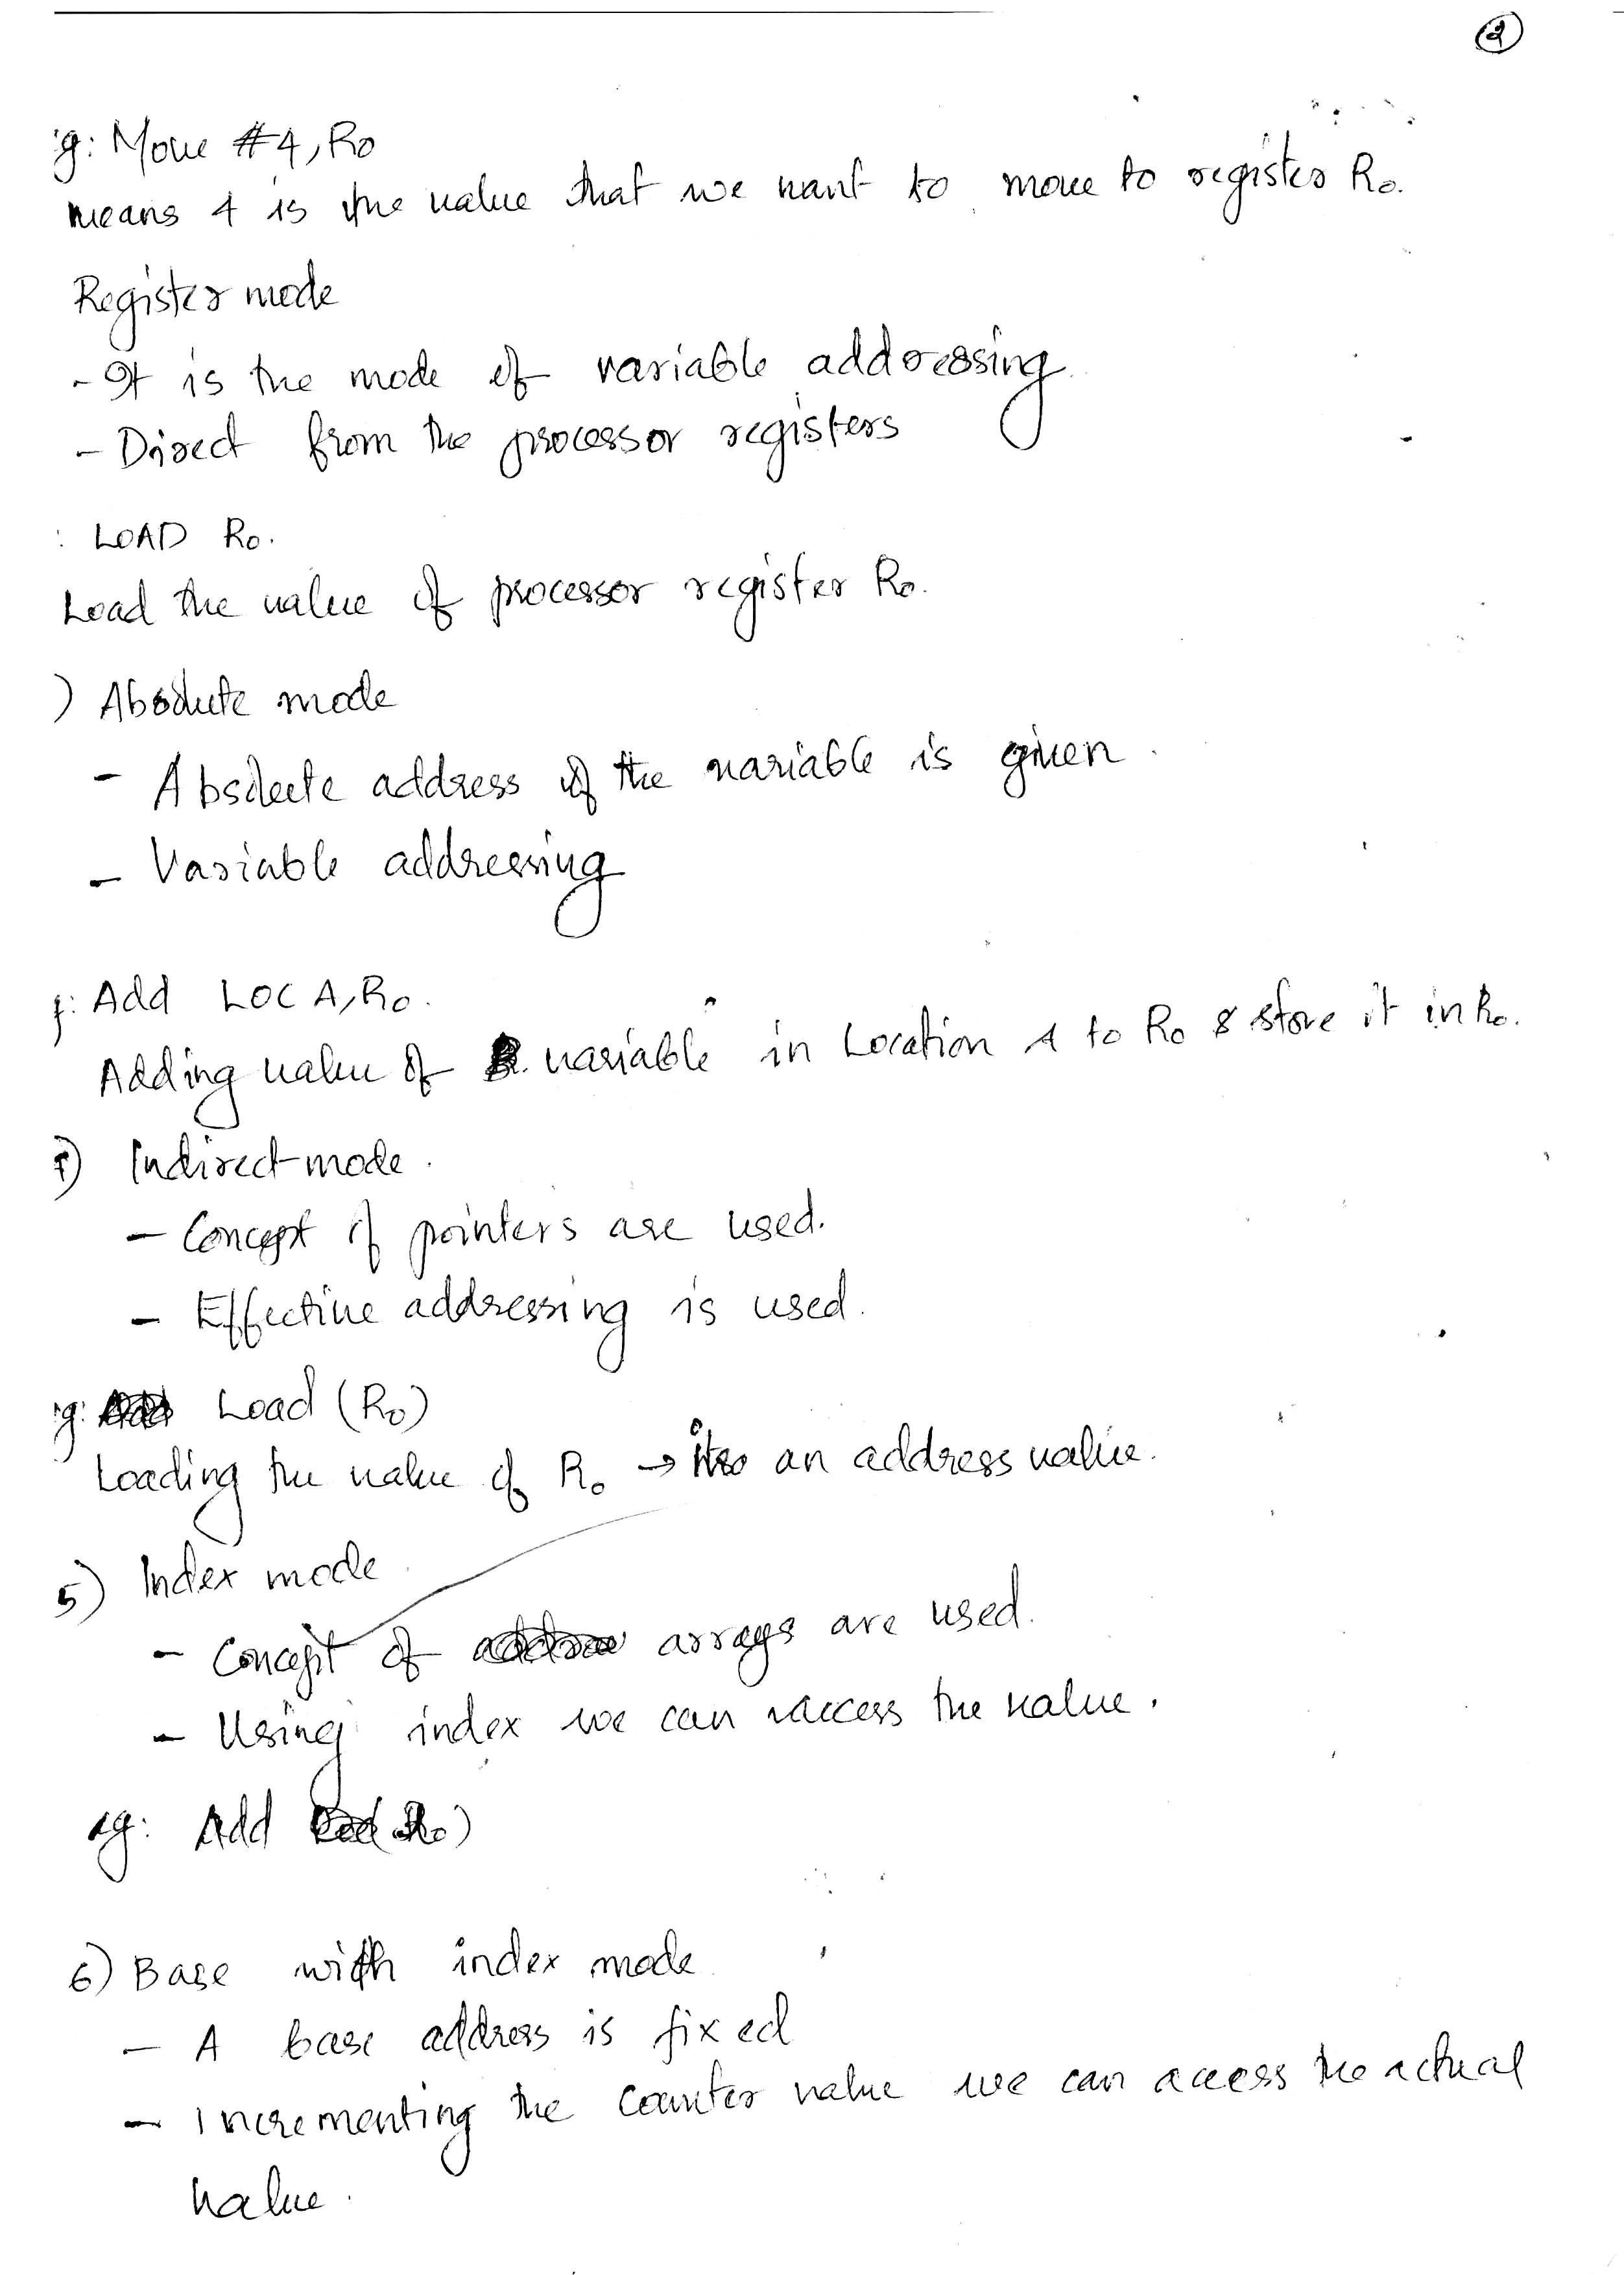 2
g: Move #4, R0
means 4 is the value that we want to move to register R0.
Register mode
- It is the mode of variable addressing
- Direct from the processor registers
: LOAD R0.
Load the value of processor register R0.
) Absolute mode
- Absolute address of the variable is given
- Variable addressing
g: Add LOC A, R0.
Adding value of variable in Location A to R0 & store it in R0.
) Indirect mode.
- Concept of pointers are used.
- Effective addressing is used.
g: Load (R0)
Loading the value of R0 → its an address value.
5) Index mode
- Concept of arrays are used.
- Using index we can access the value.
eg: Add
6) Base with index mode
- A base address is fixed
- Incrementing the counter value we can access the actual
value.